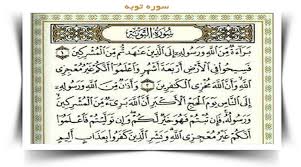 سوره توبه
سُورَةُ التَّوْبَةِ
بَرَآءَةٌ مِّنَ ٱللَّهِ وَرَسُولِهِۦٓ إِلَى ٱلَّذِينَ عَٰهَدتُّم مِّنَ ٱلْمُشْرِكِينَ ١
فَسِيحُوا۟ فِى ٱلْأَرْضِ أَرْبَعَةَ أَشْهُرٍ وَٱعْلَمُوٓا۟ أَنَّكُمْ غَيْرُ مُعْجِزِى
ٱللَّهِ وَأَنَّ ٱللَّهَ مُخْزِى ٱلْكَٰفِرِينَ ٢ وَأَذَٰنٌ مِّنَ ٱللَّهِ وَرَسُولِهِۦٓ
إِلَى ٱلنَّاسِ يَوْمَ ٱلْحَجِّ ٱلْأَكْبَرِ أَنَّ ٱللَّهَ بَرِىٓءٌ مِّنَ ٱلْمُشْرِكِينَ
وَرَسُولُهُۥ فَإِن تُبْتُمْ فَهُوَ خَيْرٌ لَّكُمْ وَإِن تَوَلَّيْتُمْ فَٱعْلَمُوٓا۟
أَنَّكُمْ غَيْرُ مُعْجِزِى ٱللَّهِ وَبَشِّرِ ٱلَّذِينَ كَفَرُوا۟ بِعَذَابٍ أَلِيمٍ